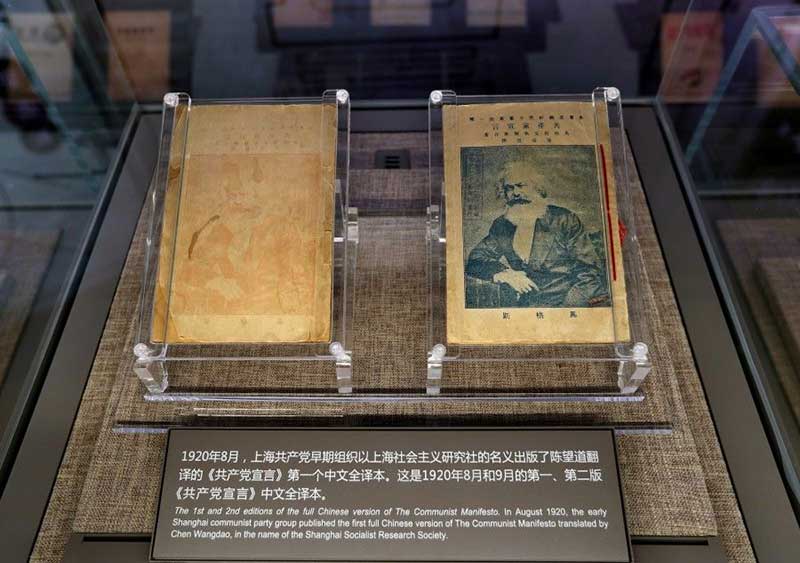 共產黨宣言
馬格斯
1920年8月，上海共产党早期组织以上海社会主义研究社的名义出版了陈望道翻
译的《共产党宣言》第一个中文全译本。这是1920年8月和9月的第一、第二版
《共产党宣言》中文全译本。
The 1st and 2nd editions of the full Chinese version of The Communist Manifesto. In August 1920, the early
Shanghai communist party group published the first full Chinese version of The Communist Manifesto translated by
Chen Wangdao, in the name of the Shanghai Socialist Research Society.